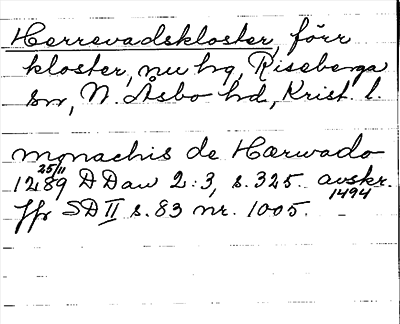 Herrevadskloster, förr
kloster, nu hg, Riseberga
sn, N. Åsbo hd, Krist. l.
monachis de Hærwado
25/11
1289 DDaw 2:3, s. 325. avskr.
1494
Jfr SD II s. 83 nr. 1005.